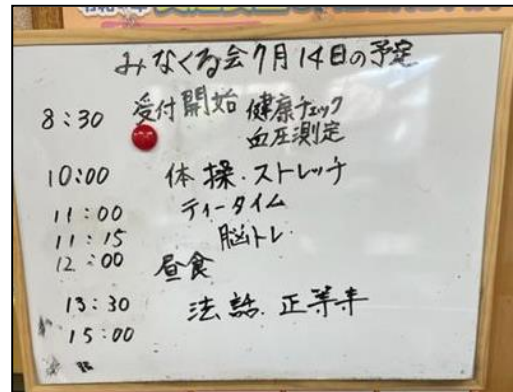 みなくる会7月14日の予定
8:30 受付開始 健康チェック
血圧測定
10:00 体操・ストレッチ
11:00 ティータイム
11:15 脳トレ
12:00 昼食
13:30 法話. 正等寺
15:00